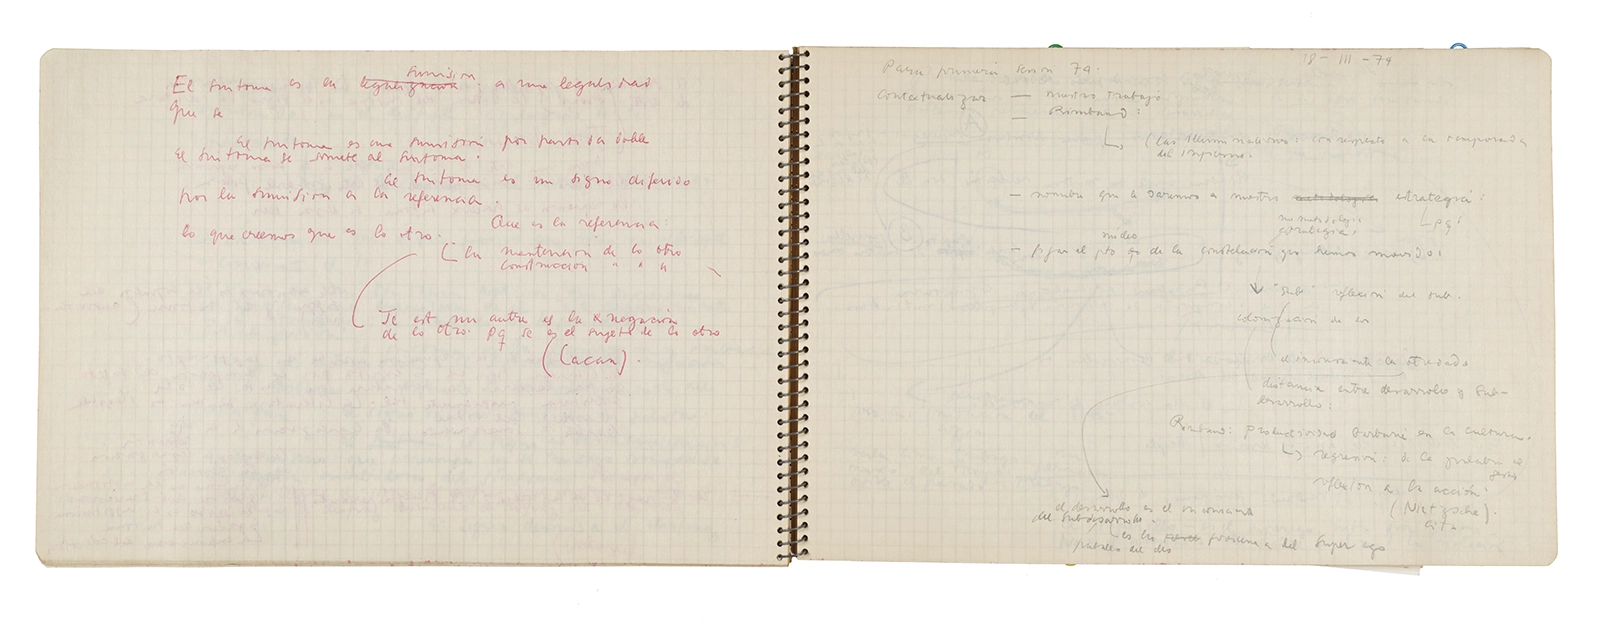 sumisión
El síntoma es la legalización a una legalidad
que se
El síntoma es una sumisión por partida doble
el síntoma se somete al síntoma.
El síntoma es un signo diferido
por la sumisión a la referencia.
Que es la referencia:
lo que creemos que es lo otro.
la mantención de lo otro
construcción " " "
Je est un autre es la negación
de lo otro. pq se es el sujeto de lo otro
(Lacan).
18-III-74
Para primera sesión 74.
Contextualizar — nuestro trabajo
— Rimbaud:
(las Illuminations: con respecto a la temporada
del infierno.
— nombre que daremos a nuestra metodología estrategia:
no metodología
estrategia,
pq:
núcleo
— fijar el pto de la constelación que hemos movido:
"sub" reflexión del sub.
colonización de
el inconsciente la otredad
distancia entre desarrollo y sub-
desarrollo:
Rimbaud: productividad barbarie en la cultura.
regresión: de la palabra al
gesto
reflexión a la acción:
(Nietzsche).
cita
el desarrollo es el inconsciente
del subdesarrollo.
es la del super ego